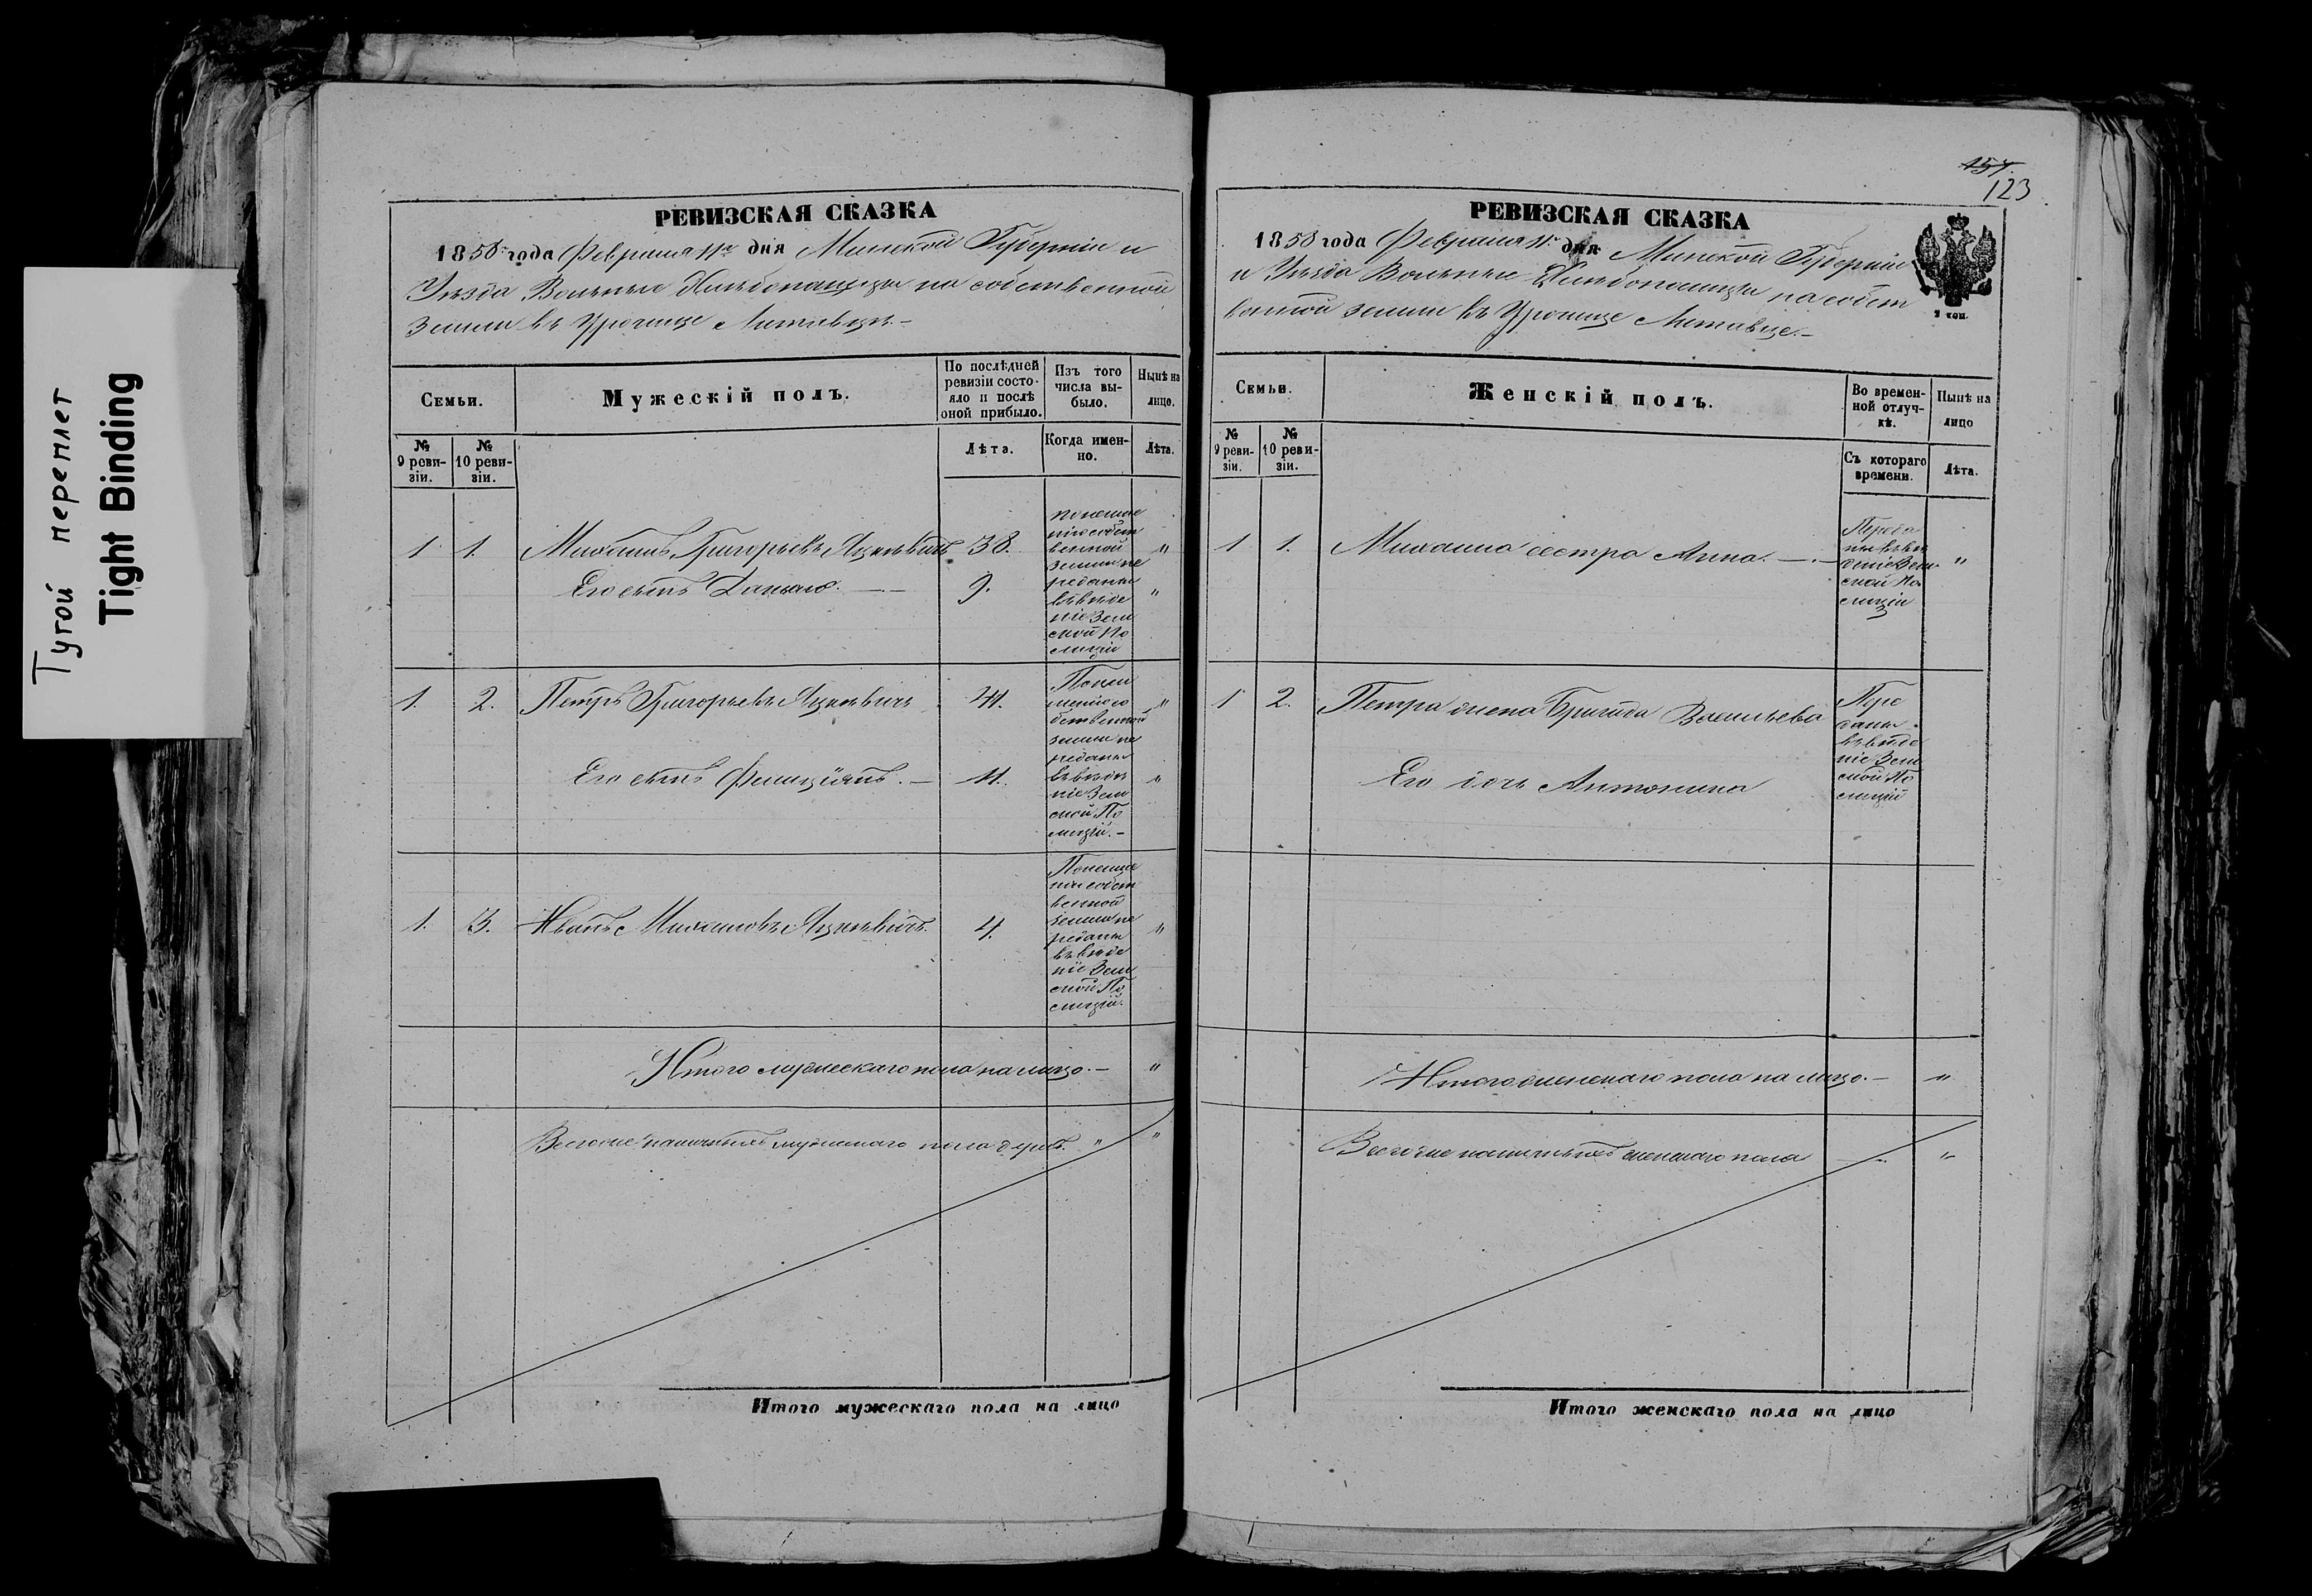 Тугой переплет
Tight Binding
РЕВИЗСКАЯ СКАЗКА
1858 года Февраля 11го дня Минской Губерніи и
Уѣзда Вольные Хлѣбопашцы на собственной
земли въ Урочище
Семьи.
Мужескій полъ.
По послѣдней
ревизіи состо-
яло и послѣ
оной прибыло.
Изъ того
числа вы-
было.
Нынѣ на
лицо.
№
9 реви-
зіи.
№
10 реви-
зіи.
Лѣта.
Когда имен-
но.
Лѣта.
1 1. Михаилъ Григорьевъ Яцкевичъ 38. "
Его сынъ Данило. — 9. "
земли пе
реданы
въ вѣде
ніе Зем
ской По
лиціи
1. 2. Петръ Григорьевъ Яцкевичъ 41. "
Его сынъ Фелиціянъ. — 11. "
собственной
земли пе
реданы
въ вѣде
ніе Зем
ской По
лиціи. —
1. 3. Иванъ Михайловъ Яцкевичъ. 4. "
собст
венной
земли пе
реданы
въ вѣде
ніе Зем
ской По
лиціи.
Итого мужескаго пола на лицо. — "
Всего же наличныхъ мужескаго пола душъ. " "
Итого мужескаго пола на лицо
157.
123
РЕВИЗСКАЯ СКАЗКА
1858 года Февраля 11го дня Минской Губерніи
и Уѣзда Вольные Хлѣбопашцы на собст
венной земли въ Урочище
2 коп.
Семьи.
Женскій полъ.
Во времен-
ной отлуч-
кѣ.
Нынѣ на
лицо
№
9 реви-
зіи.
№
10 реви-
зіи.
Съ котораго
времени.
Лѣта.
1 1. Михаила сестра Анна. — "
Переда
ны въ вѣ
деніе Зем
ской По
лиціи
1 2. Петра жена Бригида Васильева
Его дочь Антонина
Пере
даны
въ вѣде
ніе Зем
ской По
лиціи
Итого женскаго пола на лицо. — "
Всего же наличныхъ женскаго пола "
Итого женскаго пола на лицо